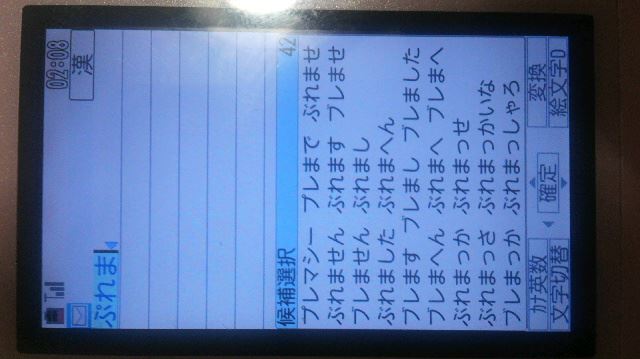 02:08
漢
ぷれま
候補選択 42
プレマシー プレまで ぶれませ
ぶれません ぶれます ブレませ
ブレません ぶれまし
ぶれました ぶれまへん
ブレます ブレまし ブレました
ブレまへん ぶれまへ ブレまへ
ぶれまっか ぶれまっせ
ぶれまっさ ぶれまっかいな
ブレまっか ぶれまっしゃろ
カナ英数 変換
確定
文字切替 絵文字D